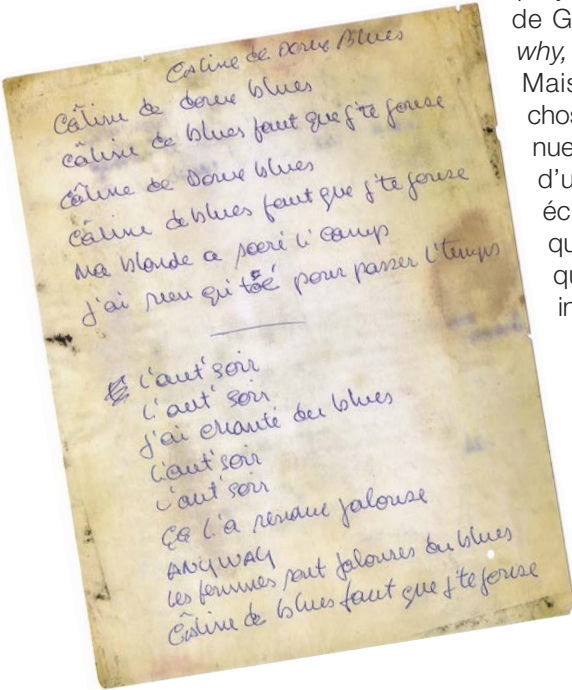 Câline de Doux Blues
Câline de doux blues
câline de blues faut que j'te jouse
Câline de Doux blues
Câline de blues faut que j'te jouse
Ma blonde a sacré l'camp
j'ai rien qu'toé pour passer l'temps
L'aut' soir
L'aut' soir
j'ai chanté du blues
L'aut' soir
L'aut' soir
Ça l'a rendue jalouse
ANYWAY
Les femmes sont jalouses du blues
Câline de blues faut que j'te jouse
de G
why,
Mais
chos
nue
d'u
éc
qu
qu
in